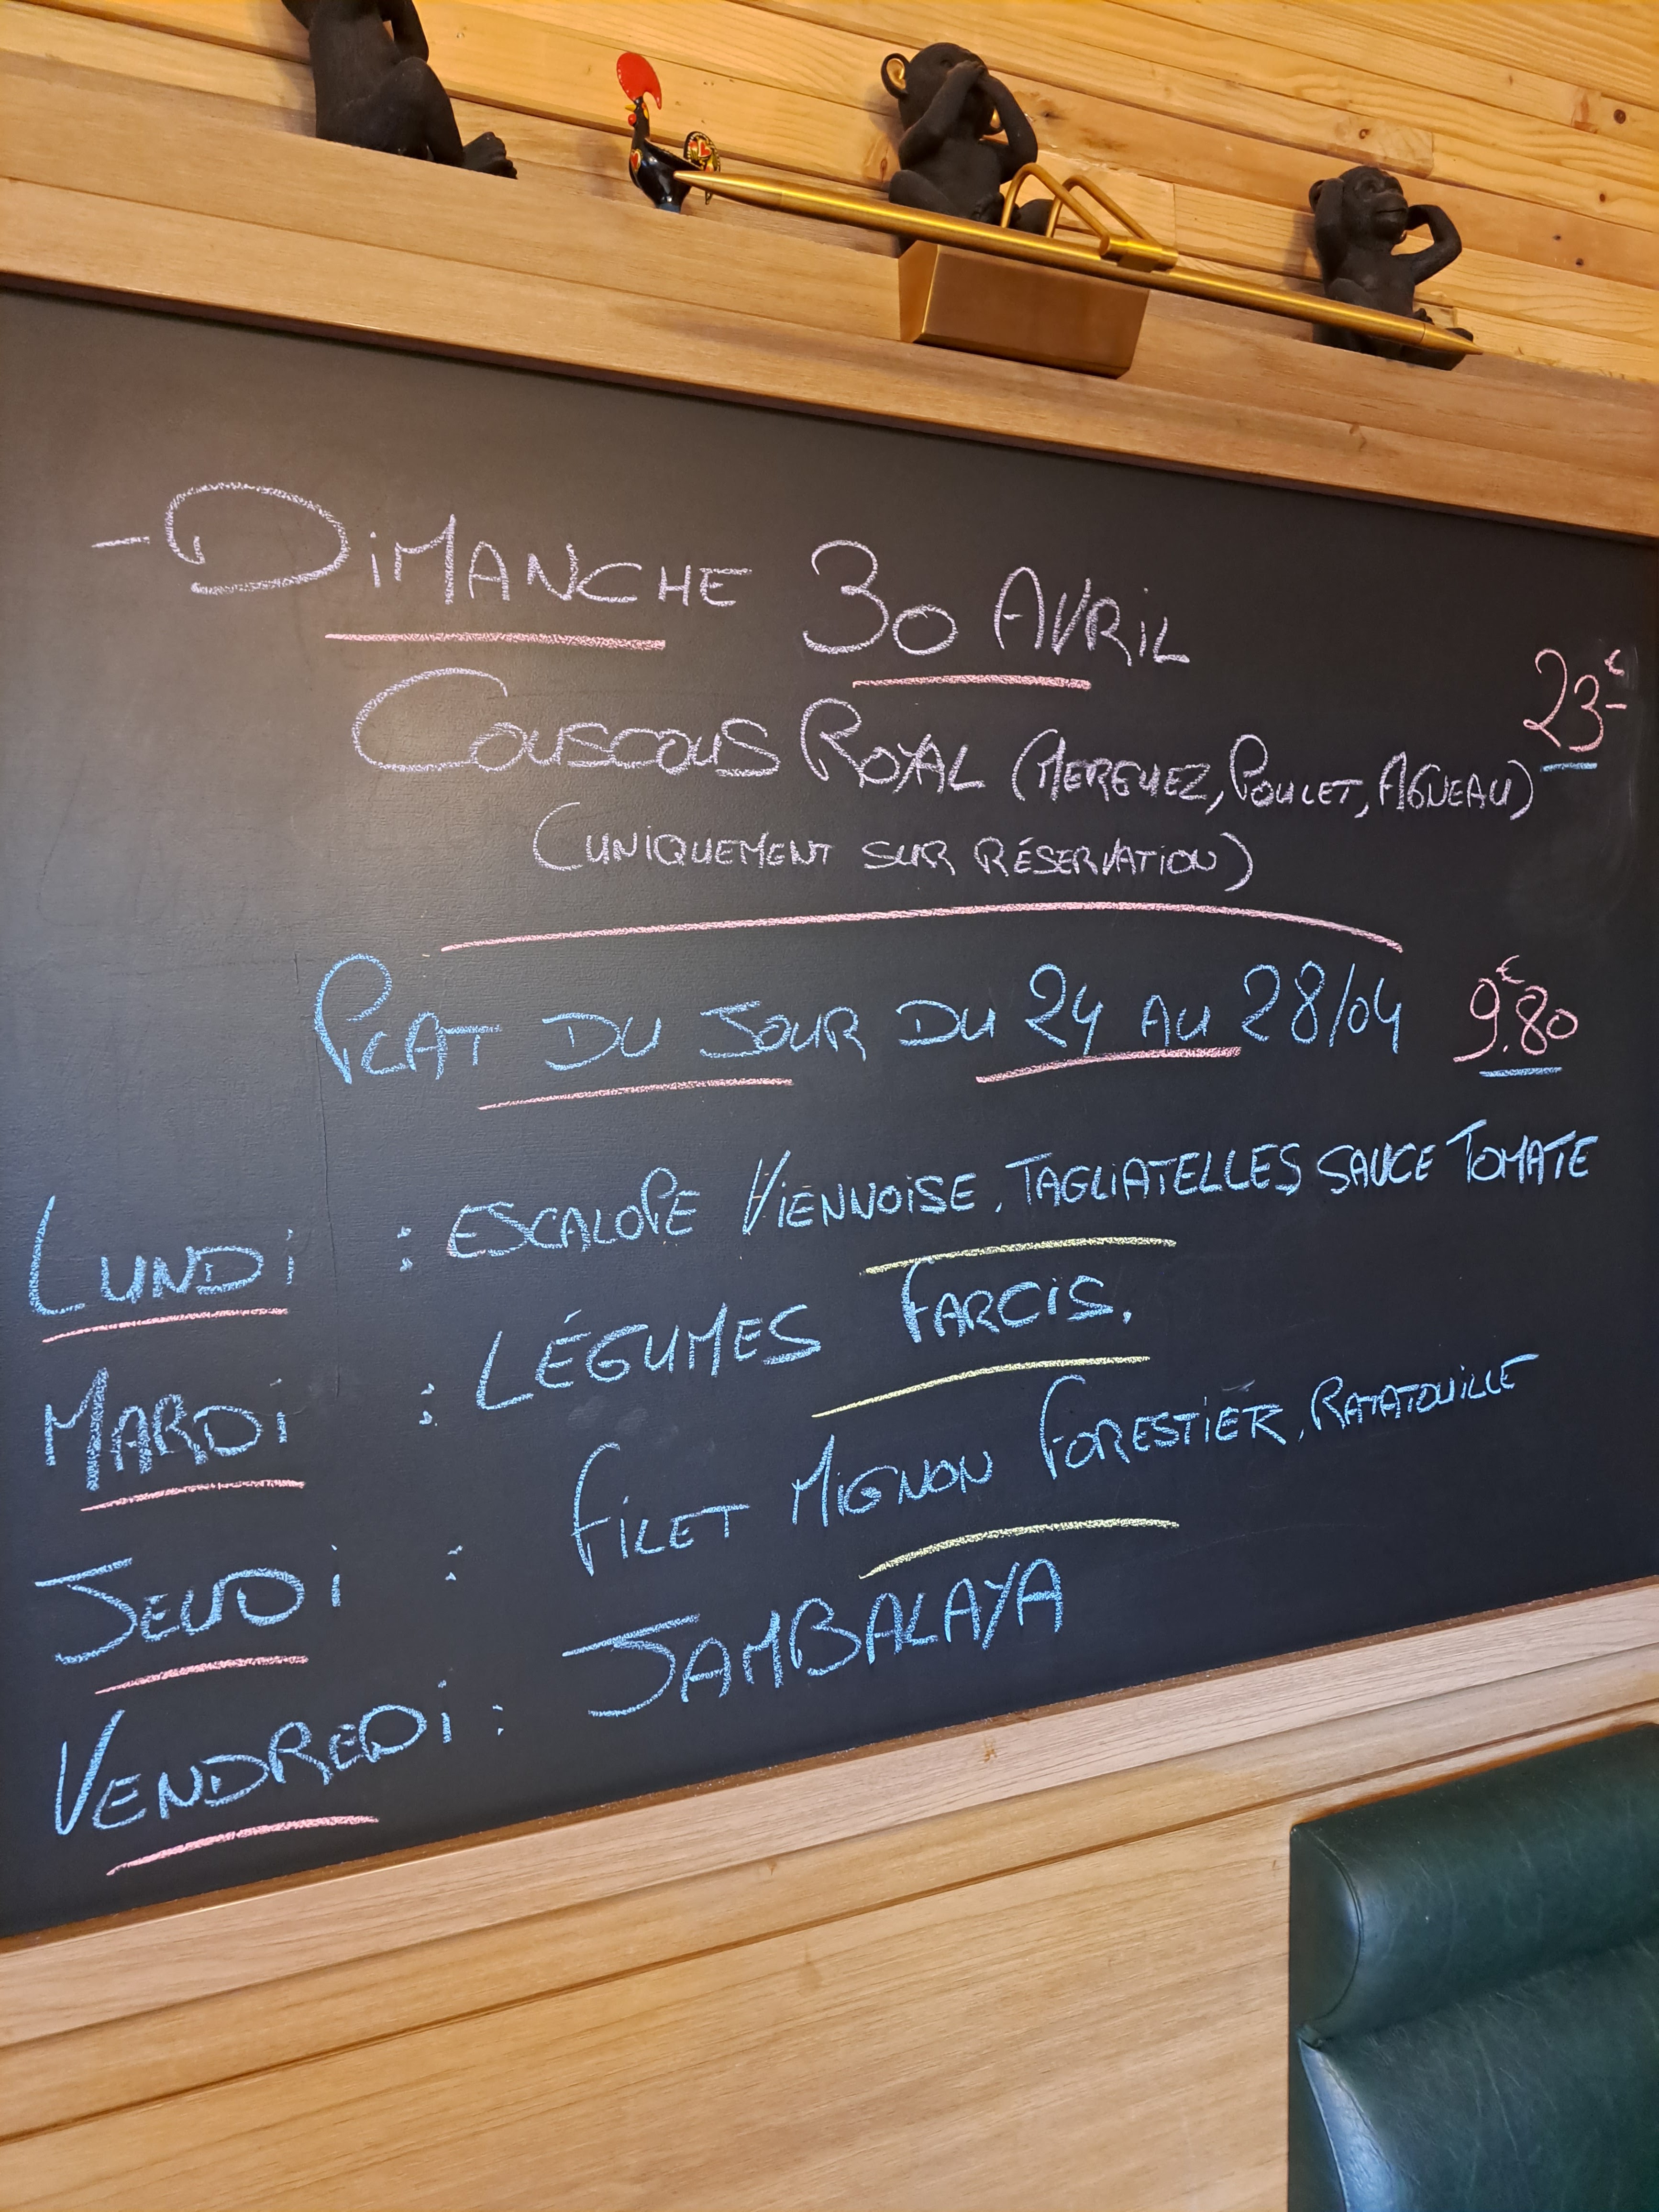 - DiMANCHE 30 AVRiL
COUSCOUS ROYAL (MERGUEZ, POULET, AGNEAU) 23€-
(UNiQUEMENT SUR RÉSERVATiON)
PLAT DU JOUR DU 24 AU 28/04 9.€80
LUNDi : ESCALOPE ViENNOiSE, TAGLiATELLES SAUCE TOMATE
MARDi : LÉGUMES FARCiS.
JEUDi : FiLET MiGNON FORESTiER, RATATOUiLLE
VENDREDi : JAMBALAYA